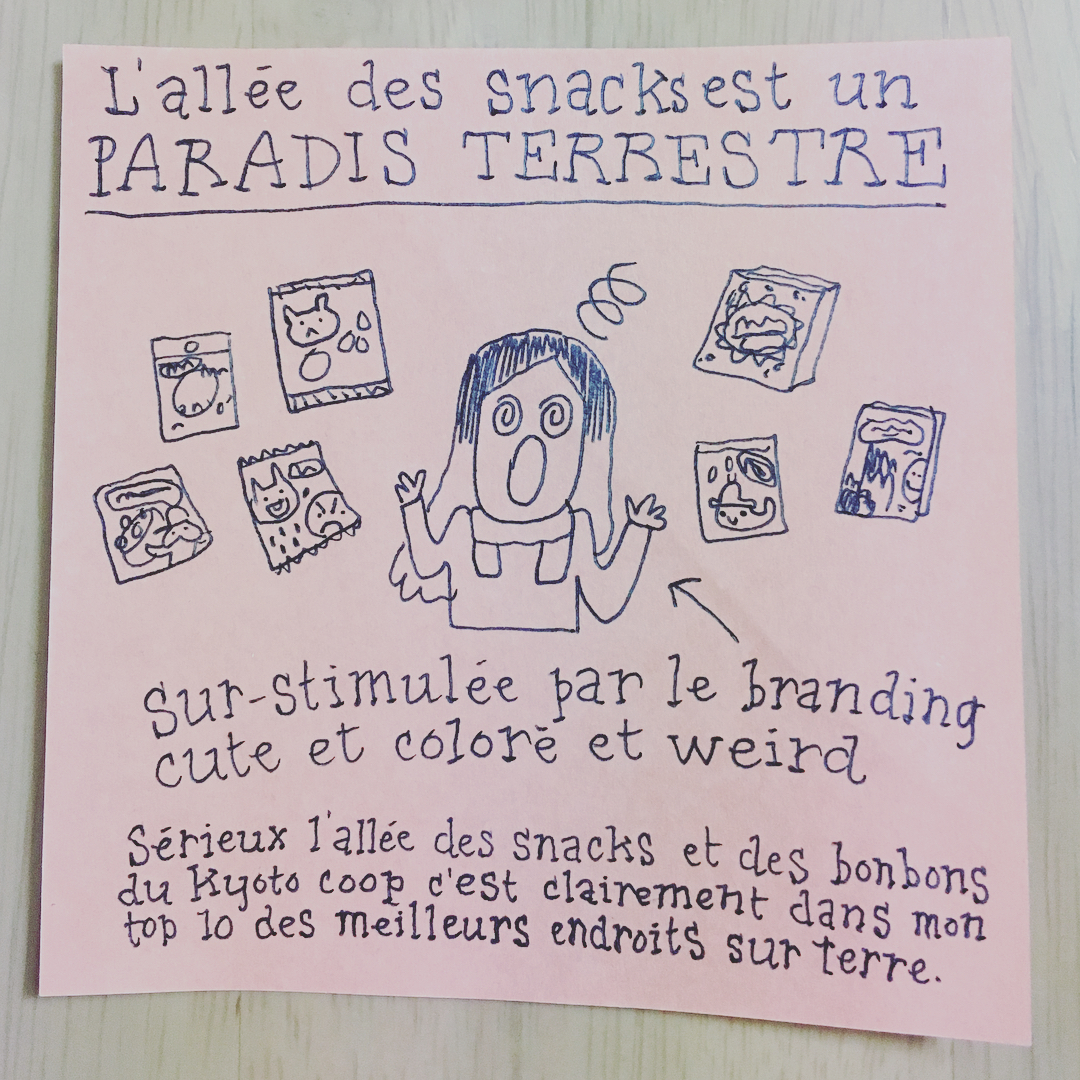 L'allée des snacks est un
PARADIS TERRESTRE
sur-stimulée par le branding
cute et coloré et weird
Sérieux l'allée des snacks et des bonbons
du Kyoto coop c'est clairement dans mon
top 10 des meilleurs endroits sur terre.